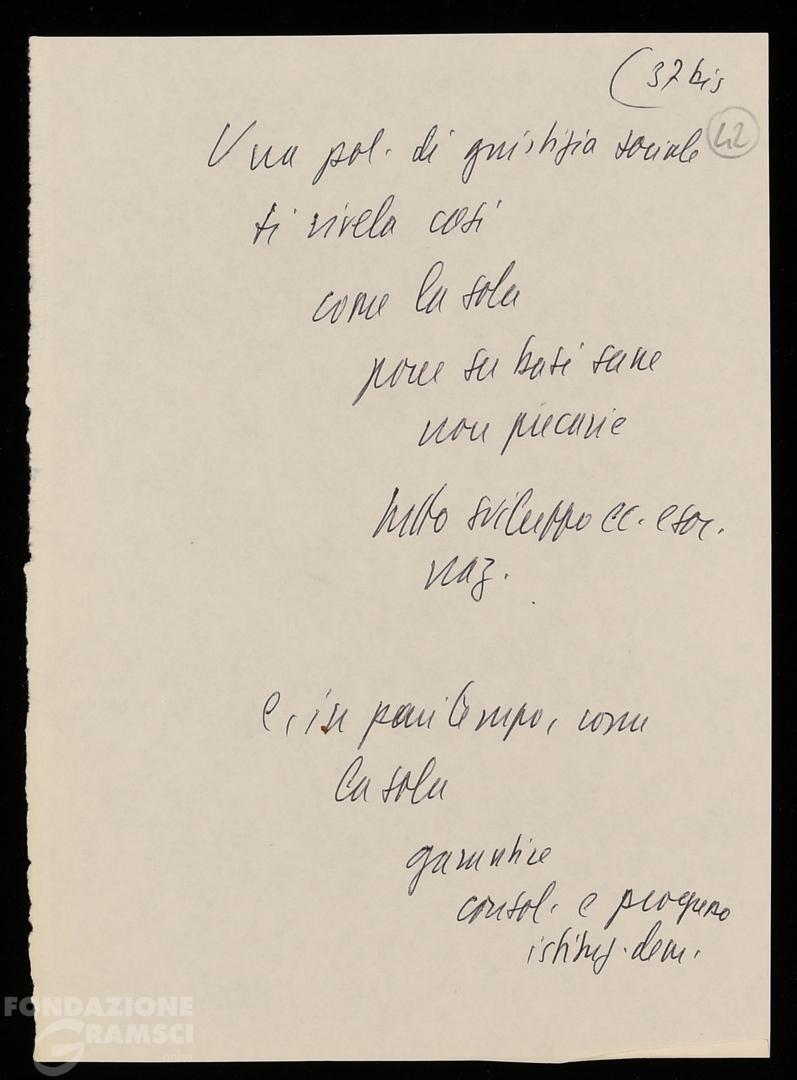 (37 bis
42
Una pol. di giustizia sociale
si rivela così
come la sola
pone su basi sane
non precarie
tutto sviluppo ec. e soc.
naz.
e, in pari tempo, come
la sola
garantire
consol. e progresso
istituz. dem.
FONDAZIONE
GRAMSCI
onlus